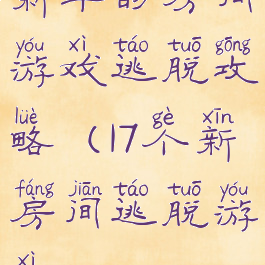 新年的房间
yóu xì táo tuō gōng
游戏逃脱攻
lüè gè xīn
略（17个新
fáng jiān táo tuō yóu
房间逃脱游
xì